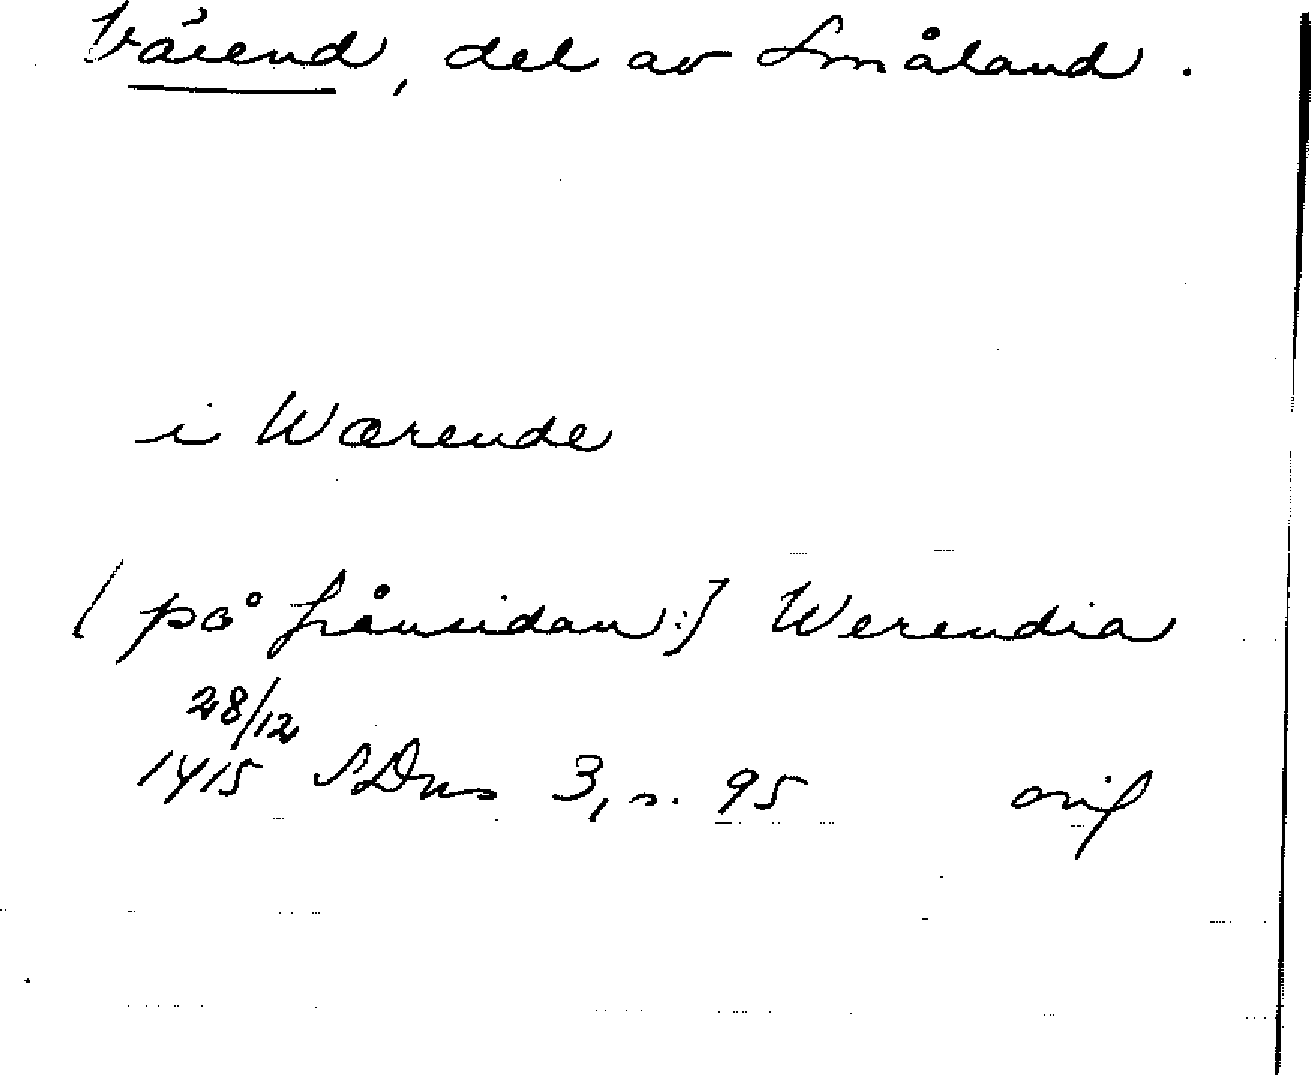 Värend, del av Småland.
i Wærende
[på frånsidan:] Werendia
28/12
1415 SDns 3, s. 95 orig